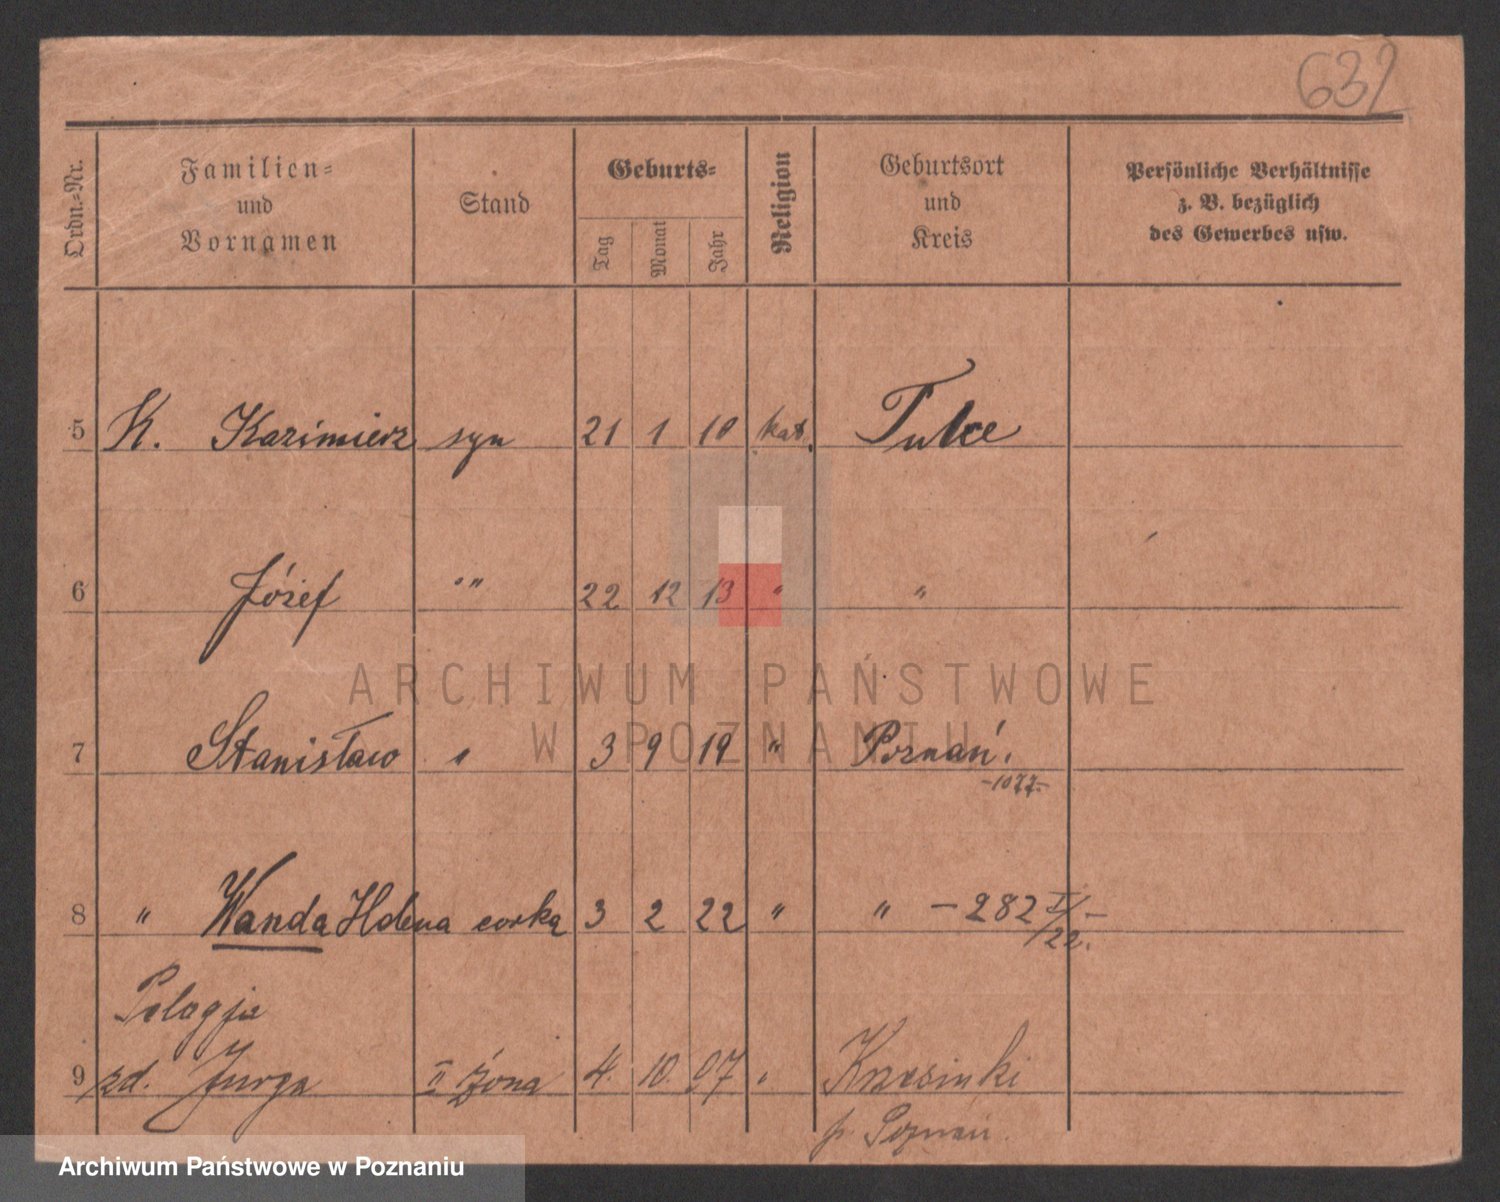 632
Ordn.-Nr.
Familien-
und
Vornamen
Stand
Geburts-
Tag
Monat
Jahr
Religion
Geburtsort
und
Kreis
Persönliche Verhältnisse
z. B. bezüglich
des Gewerbes usw.
5 K. Kazimierz syn 21 1 10 kat. Tulce
6 Józef " 22 12 13 " "
7 Stanisław " 3 9 19 " Poznań.
-1077-
8 " Wanda Helena corka 3 2 22 " " - 282 I/22. -
Pelagja
9 zd. Jurga II żona 4. 10. 97 " Krzesinki
p. Poznań.
ARCHIWUM PAŃSTWOWE
W POZNANIU
Archiwum Państwowe w Poznaniu